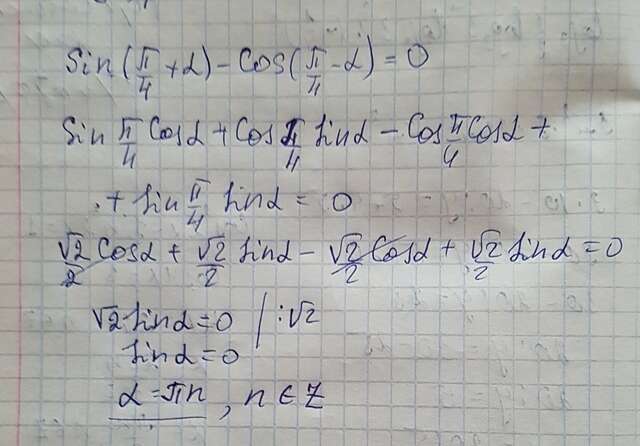 Sin(π/4 + α) - Cos(π/4 - α) = 0
Sin π/4 Cosα + Cos π/4 Sinα - Cos π/4 Cosα +
+ Sin π/4 Sinα = 0
√2/2 Cosα + √2/2 Sinα - √2/2 Cosα + √2/2 Sinα = 0
√2 Sinα = 0 / :√2
Sinα = 0
α = πn, n ∈ Z